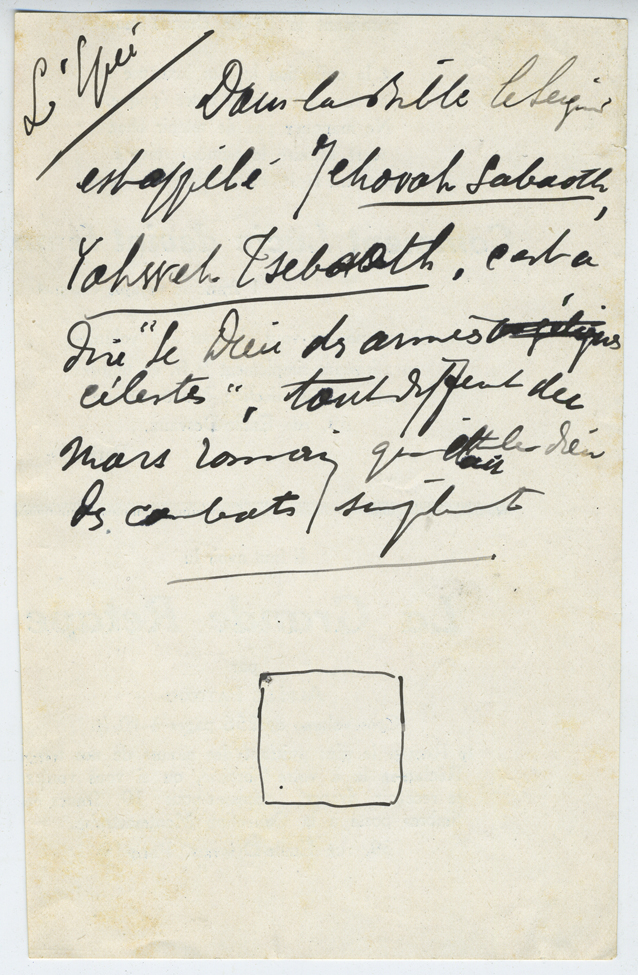 L'Épée
Dans la Bible le Seign
est appelé Jehovah Sabaoth,
Yahweh Tsebaoth, c'est à
dire "le Dieu des armées
célestes", tout différent du
Mars romain qui était le dieu
des combats simplement